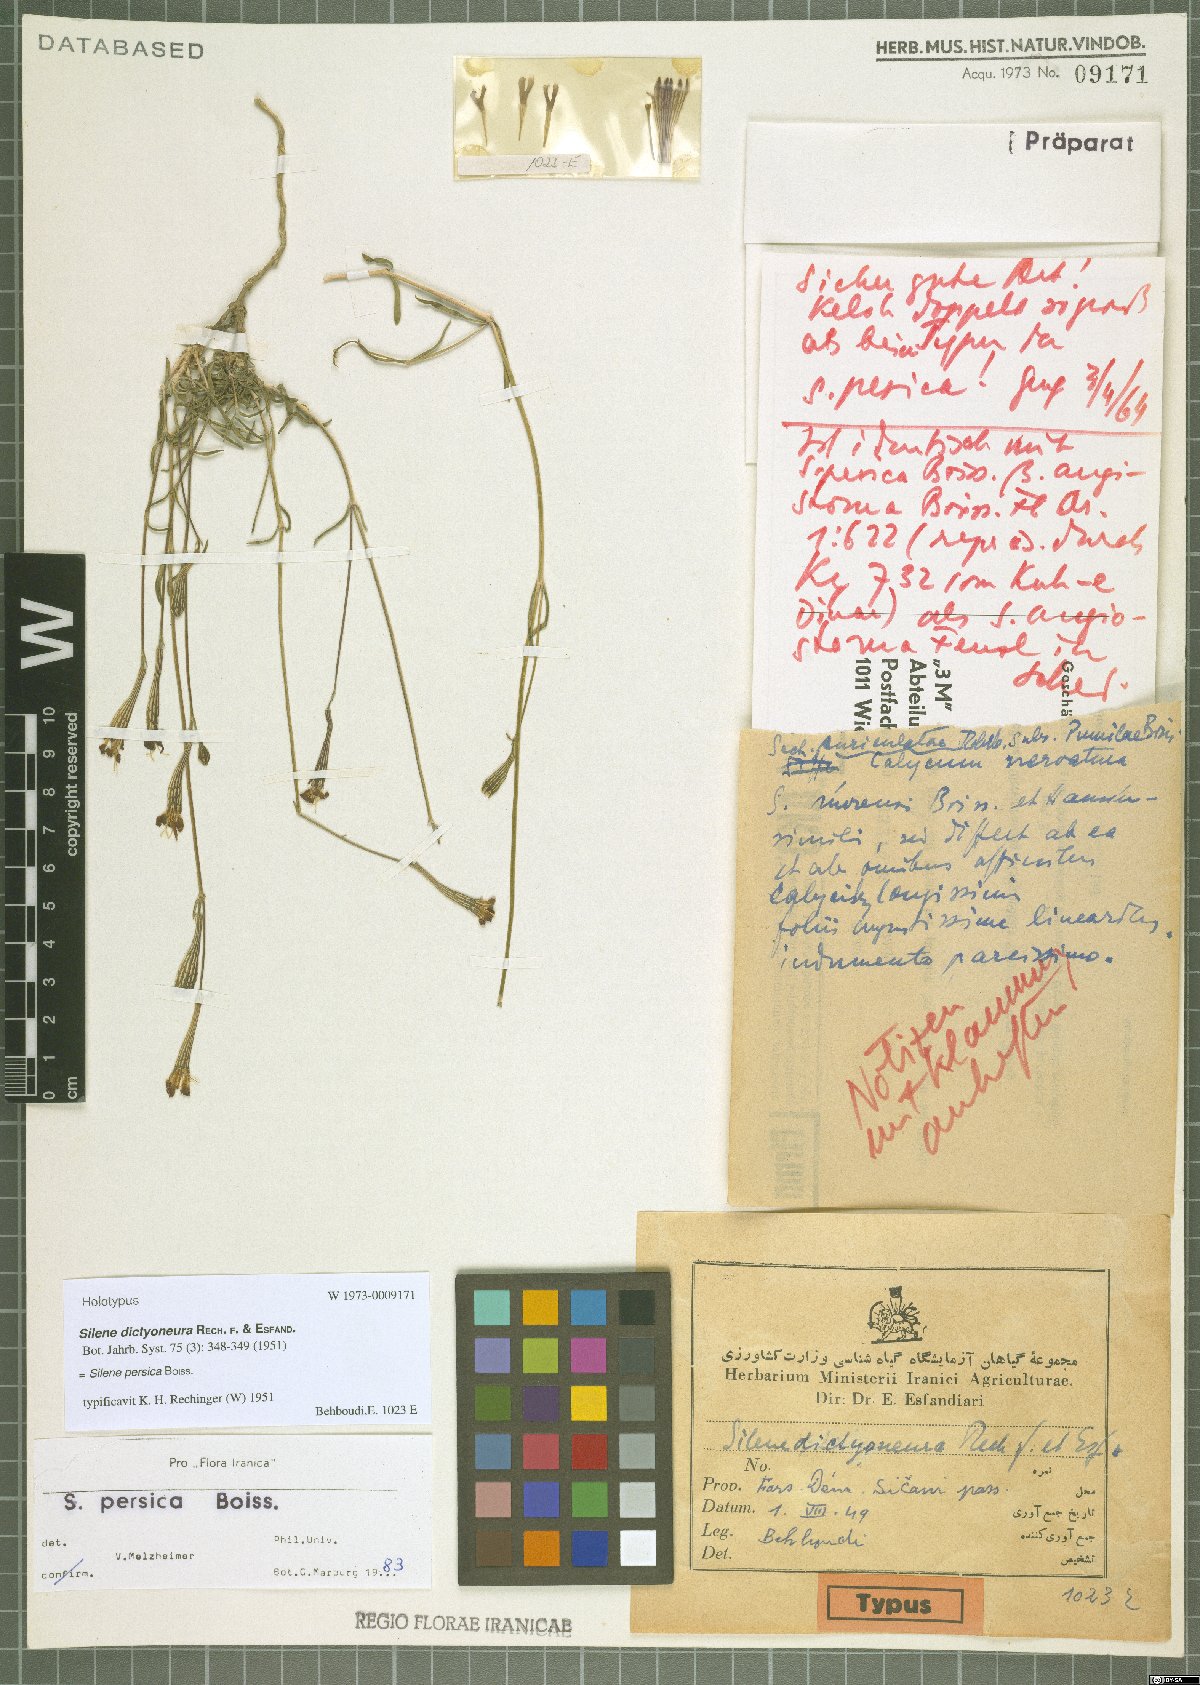 DATABASED
HERB.MUS.HIST.NATUR.VINDOB.
Acqu. 1973 No. 09171
1023-E
Präparat
Sicher gute Art!
Kelch doppelt so groß
als beim Typus da
S. persica! 3/4/64
Ist identisch mit
S. persica Boiss. β. angi-
stoma Boiss. Fl. Or.
1:622 (repräs. durch
Ky 732 vom Kuh-e
Dinar) als S. angio-
stoma Fenzl in
sched.
Geschä
„3 M"
Abteilu
Postfach
1011 Wie
Sect. auriculatae Subs. Pumilae Boiss.
Calycum nervatura
S. Boiss. et Hausskn.
similis, sed differt ab ea
et ab omnibus affinibus
calycibus longissimis
foliis angustissime linearibus,
indumento parcissimo.
Notizen
mit Klammer
anheften
W
0 1 2 3 4 5 6 7 8 9 10
cm
copyright reserved
Holotypus
W 1973-0009171
Silene dictyoneura RECH. F. & ESFAND.
Bot. Jahrb. Syst. 75 (3): 348-349 (1951)
= Silene persica Boiss.
typificavit K. H. Rechinger (W) 1951
Behboudi,E. 1023 E
Pro „Flora Iranica"
S. persica Boiss.
det. V.Melzheimer
Phil.Univ.
confirm.
Bot.G.Marburg 1983
REGIO FLORAE IRANICAE
مجموعهٔ گیاهان آزمایشگاه گیاه شناسی وزارت کشاورزی
Herbarium Ministerii Iranici Agriculturae.
Dir: Dr. E. Esfandiari
Silene dictyoneura Rech f. et Esf.
No. نمره
Prov. Fars Dena. Sičani pass. محل
Datum. 1. VIII. 49 تاریخ جمع آوری
Leg. Behboudi جمع آوری کننده
Det. تشخیص
1023 E
Typus
BY-SA